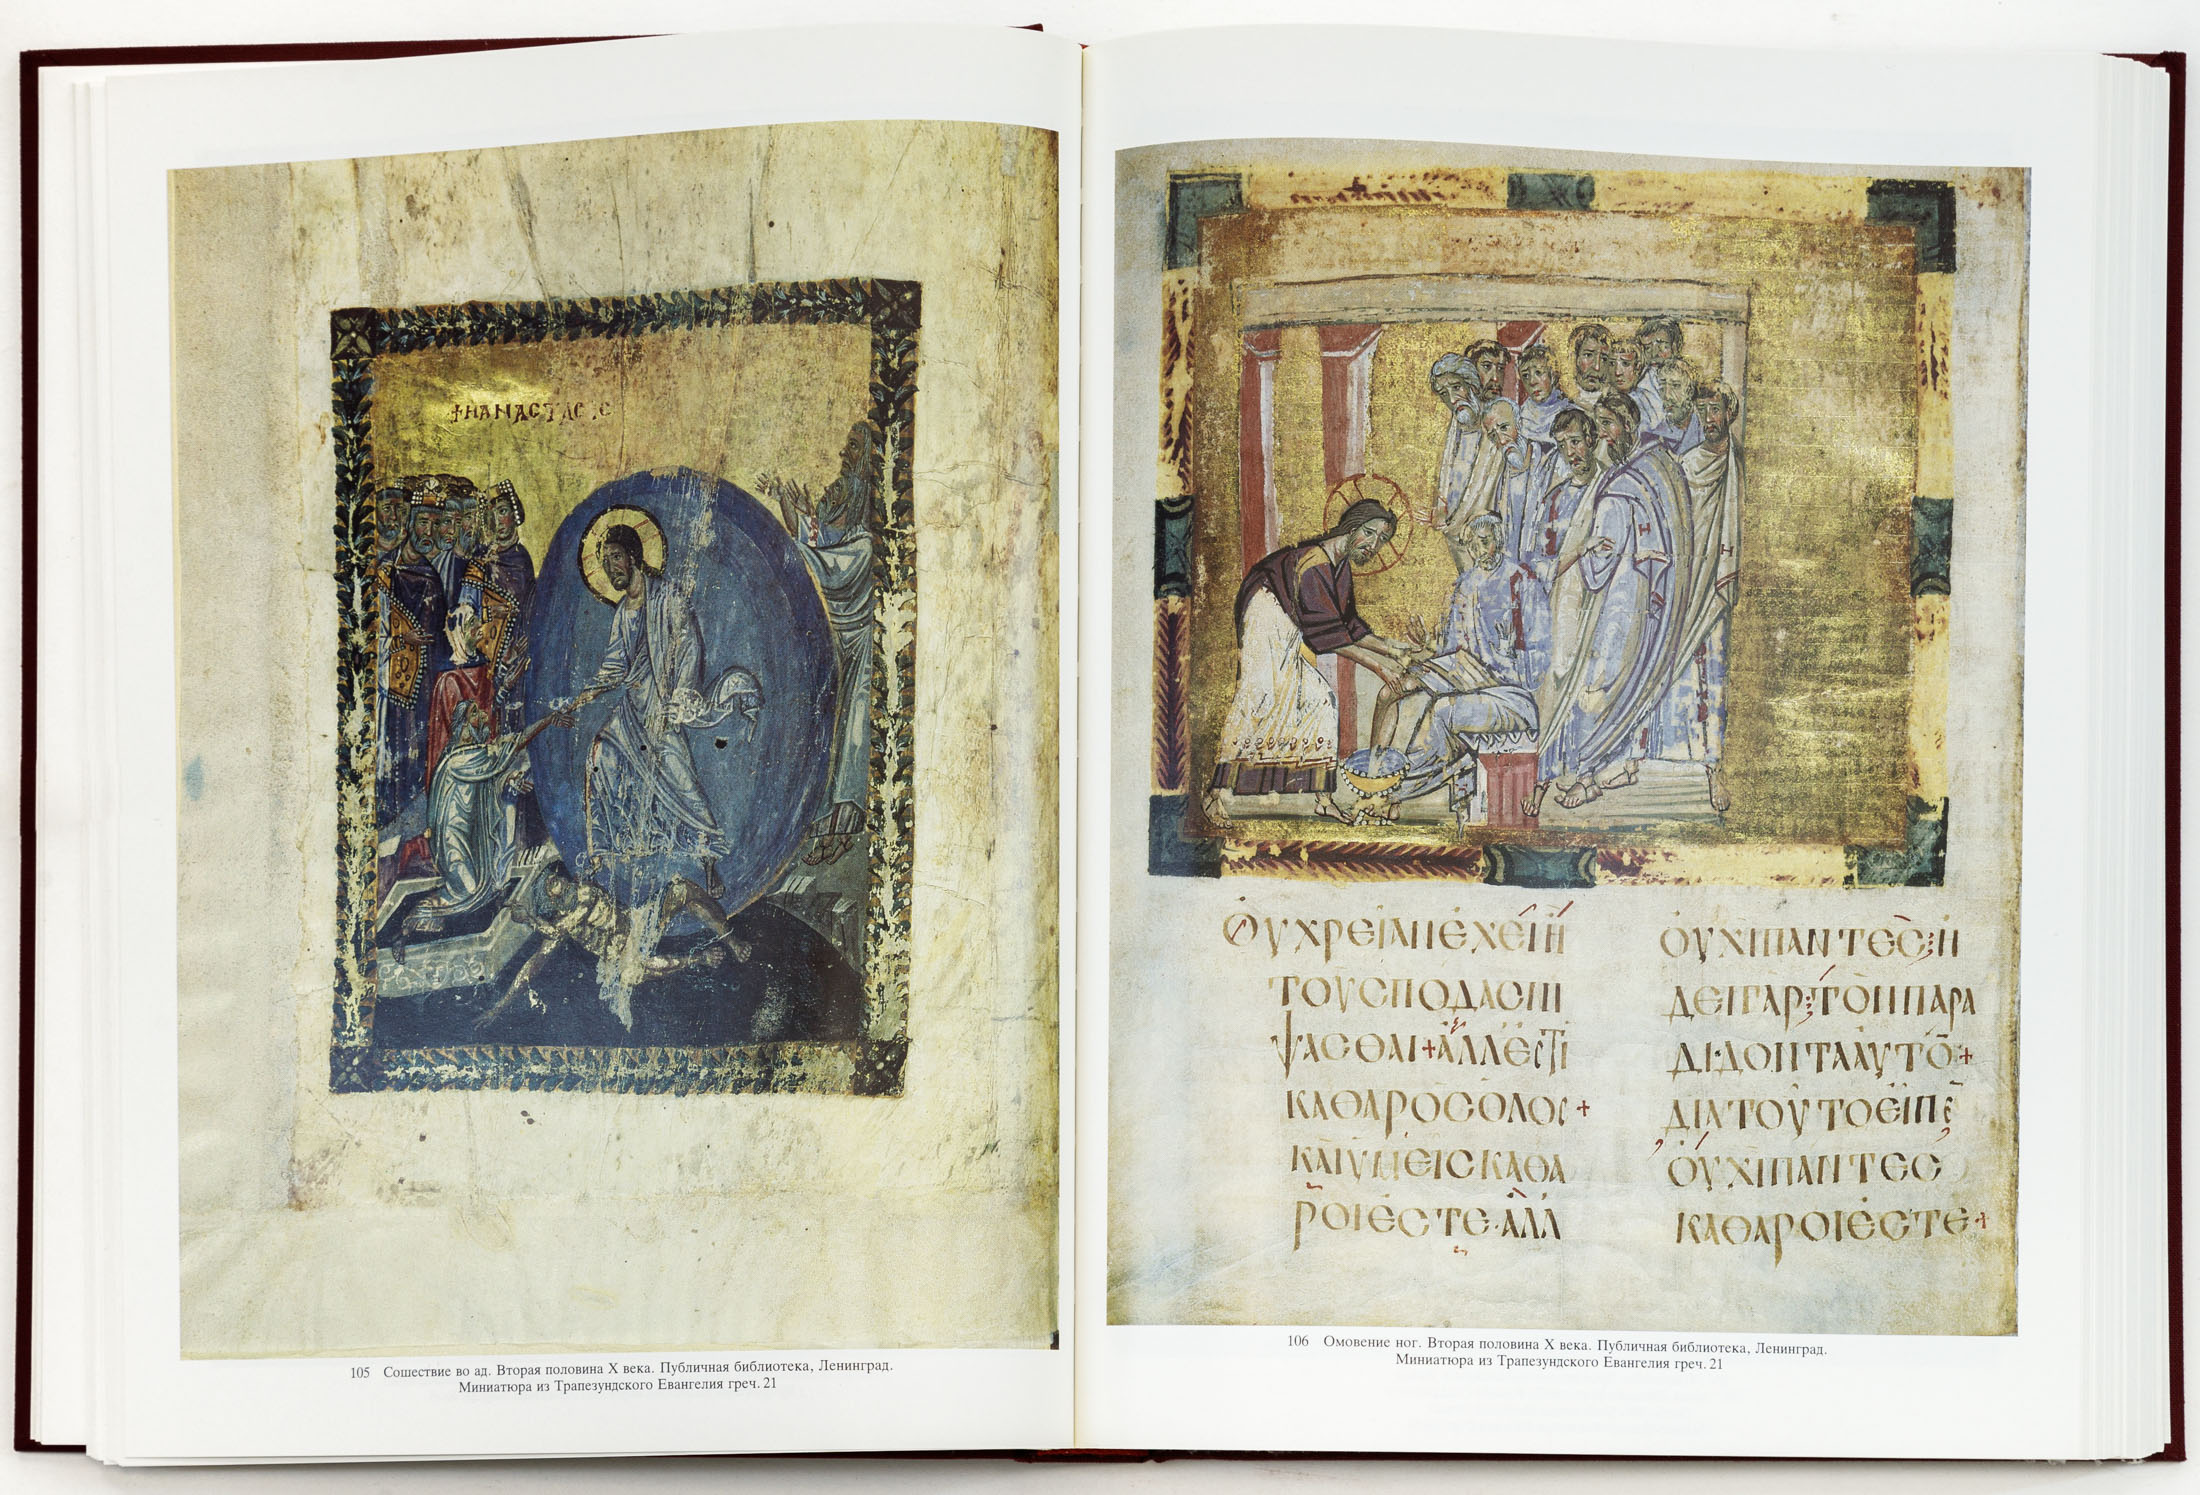 +ΗΑΝΑCΤΑCΙC
105 Сошествие во ад. Вторая половина X века. Публичная библиотека, Ленинград.
Миниатюра из Трапезундского Евангелия греч. 21
ΟΥΧΡΕΙΑΝΕΧΕΙΗ
ΤΟΥCΠΟΔΑCΝΙ
ΨΑCΘΑΙ+ΑΛΛΕCΤΙ
ΚΑΘΑΡΟCΟΛΟC+
ΚΑΙΥΜΕΙCΚΑΘΑ
ΡΟΙΕCΤΕ·ΑΛΛ
ΟΥΧΙΠΑΝΤΕC;Η
ΔΕΙΓΑΡ;ΤΟΝΠΑΡΑ
ΔΙΔΟΝΤΑΑΥΤΟ+
ΔΙΑΤΟΥΤΟΕΙΠΕ
ΟΥΧΙΠΑΝΤΕC
ΚΑΘΑΡΟΙΕCΤΕ+
106 Омовение ног. Вторая половина X века. Публичная библиотека, Ленинград.
Миниатюра из Трапезундского Евангелия греч. 21